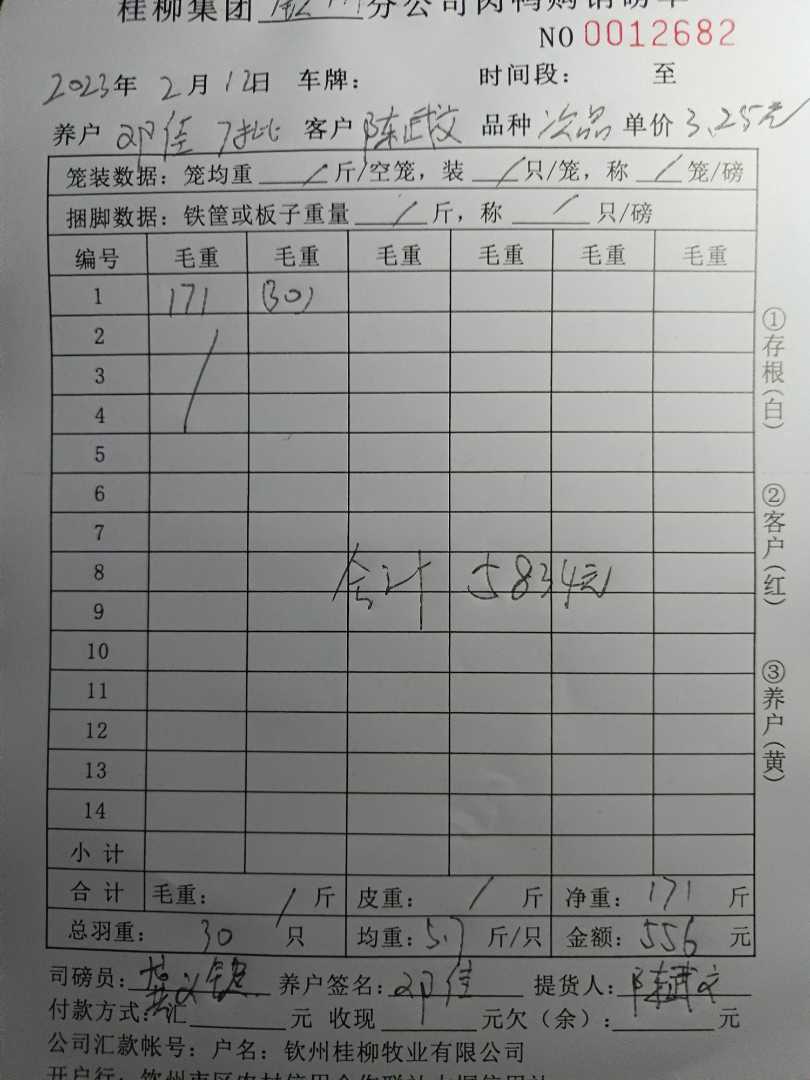 桂柳集团 钦州 分公司肉鸭购销磅单
NO 0012682
2023年 2月 12日 车牌: 时间段: 至
养户 邓佳 7批 客户 陈武文 品种 次品 单价 3.25元
笼装数据: 笼均重 / 斤/空笼, 装 / 只/笼, 称 / 笼/磅
捆脚数据: 铁筐或板子重量 / 斤, 称 / 只/磅
编号 毛重 毛重 毛重 毛重 毛重 毛重
1 171 (30)
2
3
4
5
6
7
8
合计 5834元
9
10
11
12
13
14
小计
合计 毛重: / 斤 皮重: / 斤 净重: 171 斤
总羽重: 30 只 均重: 5.7 斤/只 金额: 556 元
司磅员: 养户签名: 邓佳 提货人: 陈武文
付款方式: 汇 元 收现 元欠(余): 元
公司汇款帐号: 户名: 钦州桂柳牧业有限公司
①存根(白)
②客户(红)
③养户(黄)